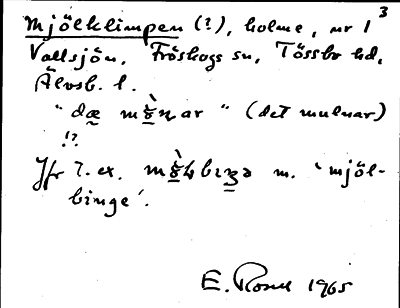 3
Mjölklimpen (?), holme, nr 1
Vallsjön. Fröskogs sn, Tössbo hd,
Älvsb. l.
"dæ mö̀ɳar" (det mulnar)
!?
Jfr t. ex. m. 'mjöl-
binge'.
E. 1965